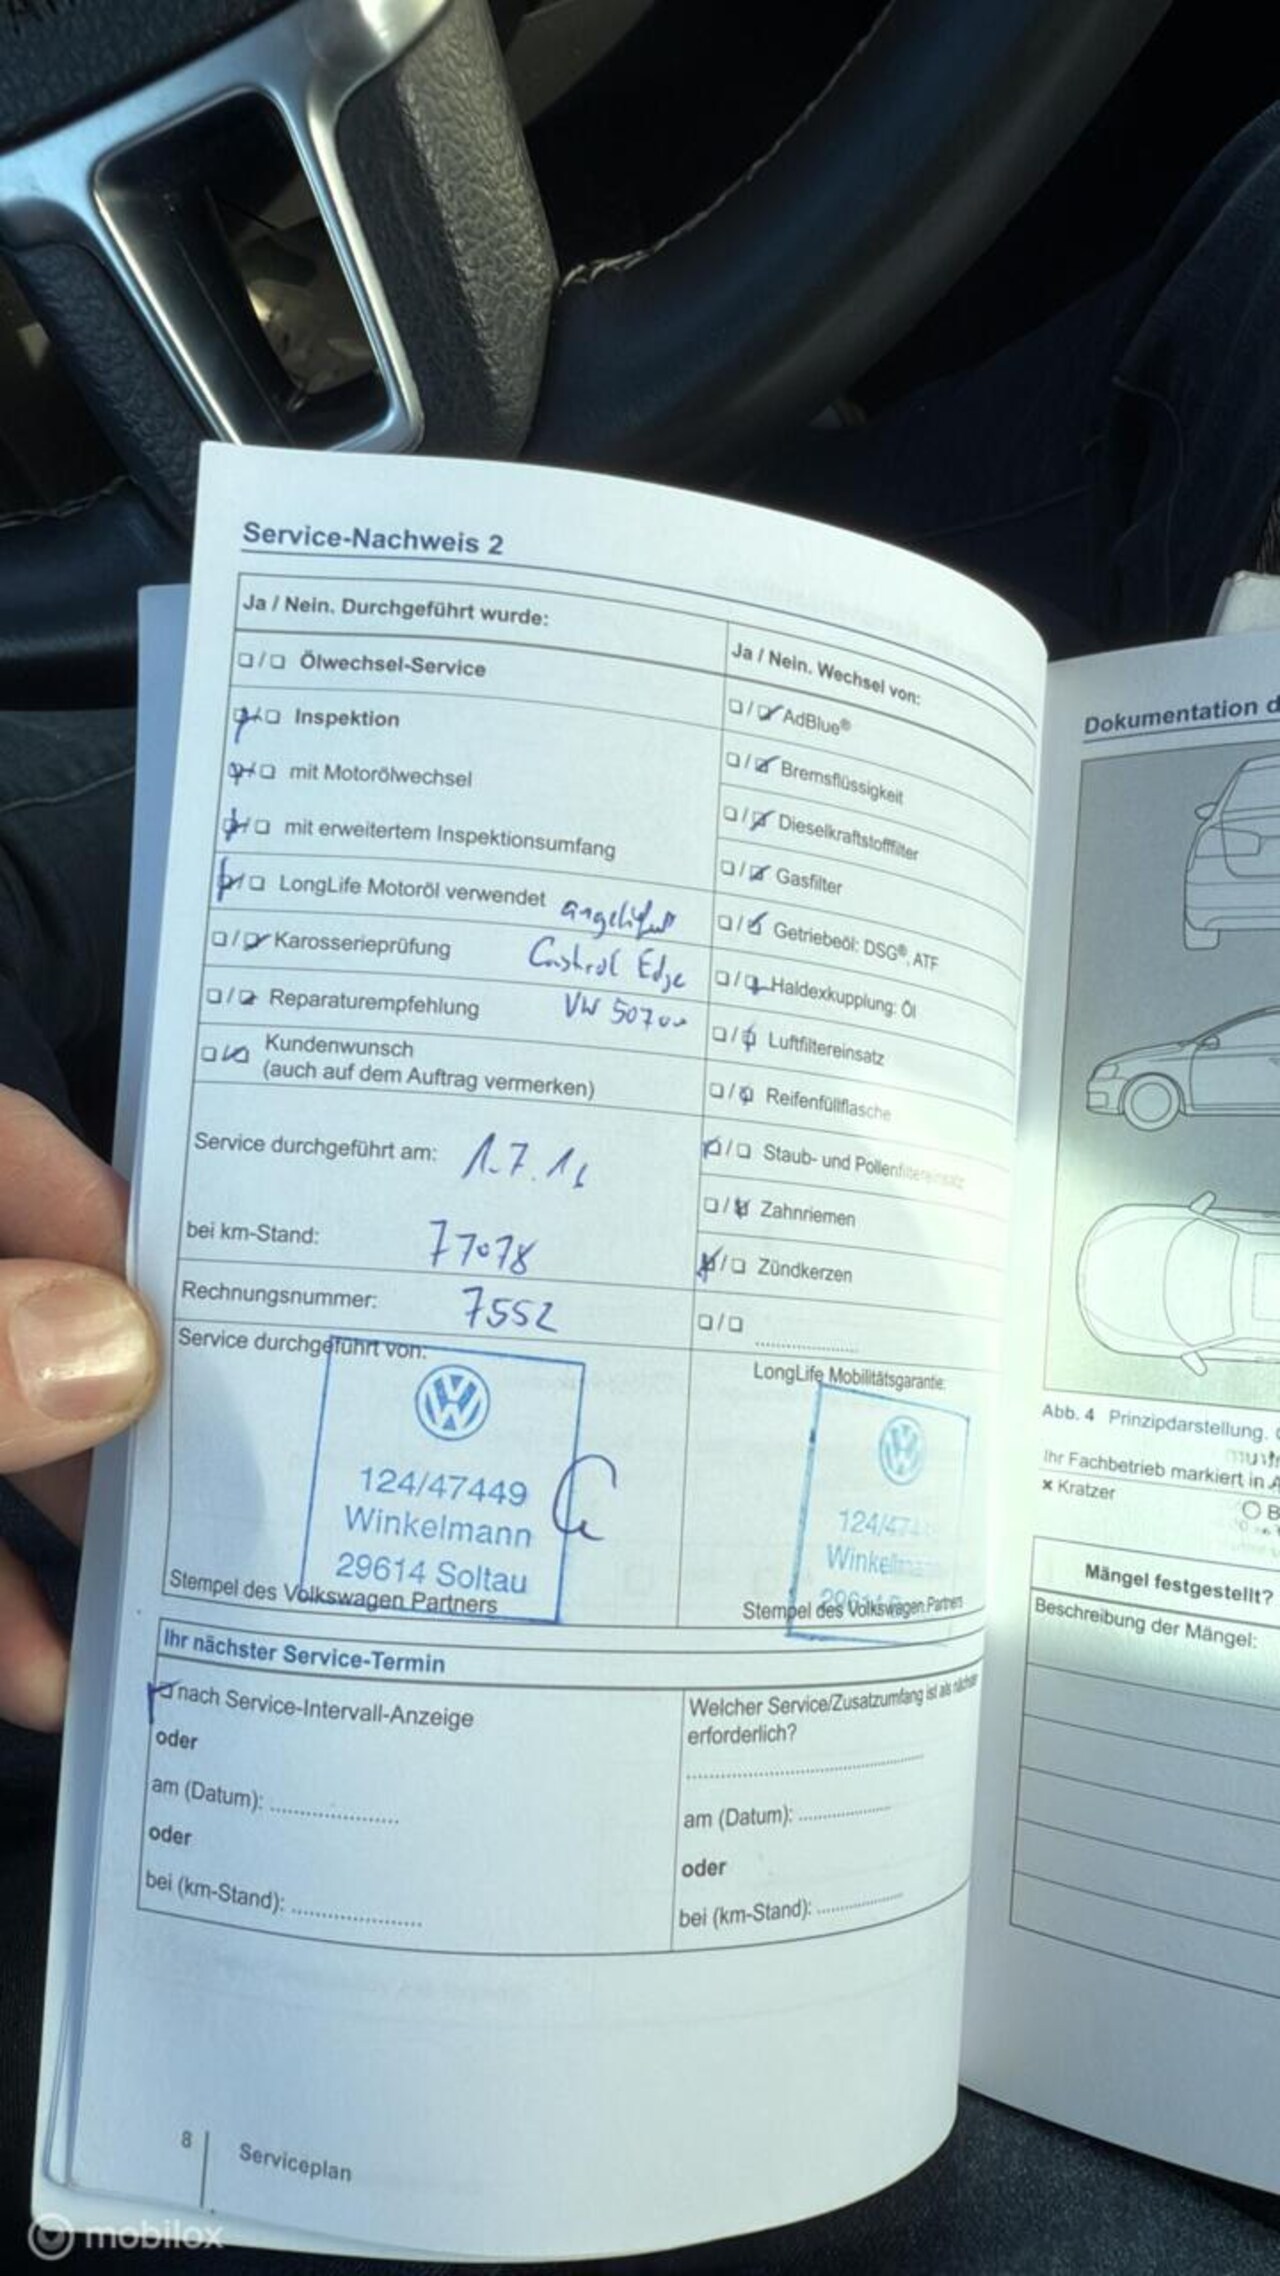 Service-Nachweis 2
Ja / Nein. Durchgeführt wurde:
❑ / ❑ Ölwechsel-Service
❑ / ❑ Inspektion
❑ / ❑ mit Motorölwechsel
❑ / ❑ mit erweitertem Inspektionsumfang
❑ / ❑ LongLife Motoröl verwendet angeliefert
❑ / ❑ Karosserieprüfung Castrol Edge
❑ / ❑ Reparaturempfehlung VW 50700
❑ / ❑ Kundenwunsch
(auch auf dem Auftrag vermerken)
Service durchgeführt am: 1.7.16
bei km-Stand: 77078
Rechnungsnummer: 7552
Service durchgeführt von:
124/47449
Winkelmann
29614 Soltau
Stempel des Volkswagen Partners
Ja / Nein. Wechsel von:
❑ / ❑ AdBlue®
❑ / ❑ Bremsflüssigkeit
❑ / ❑ Dieselkraftstofffilter
❑ / ❑ Gasfilter
❑ / ❑ Getriebeöl: DSG®, ATF
❑ / ❑ Haldexkupplung: Öl
❑ / ❑ Luftfiltereinsatz
❑ / ❑ Reifenfüllflasche
❑ / ❑ Staub- und Pollenfiltereinsatz
❑ / ❑ Zahnriemen
❑ / ❑ Zündkerzen
❑ / ❑ ....................
LongLife Mobilitätsgarantie:
124/474
Winkelmann
29614
Stempel des Volkswagen Partners
Ihr nächster Service-Termin
❑ nach Service-Intervall-Anzeige
oder
am (Datum): ....................
oder
bei (km-Stand): ....................
Welcher Service/Zusatzumfang ist als nächster
erforderlich?
am (Datum): ..............
oder
bei (km-Stand): ..............
8 Serviceplan
Dokumentation d
Abb. 4 Prinzipdarstellung.
Ihr Fachbetrieb markiert in A
× Kratzer
○ B
Mängel festgestellt?
Beschreibung der Mängel:
mobilox